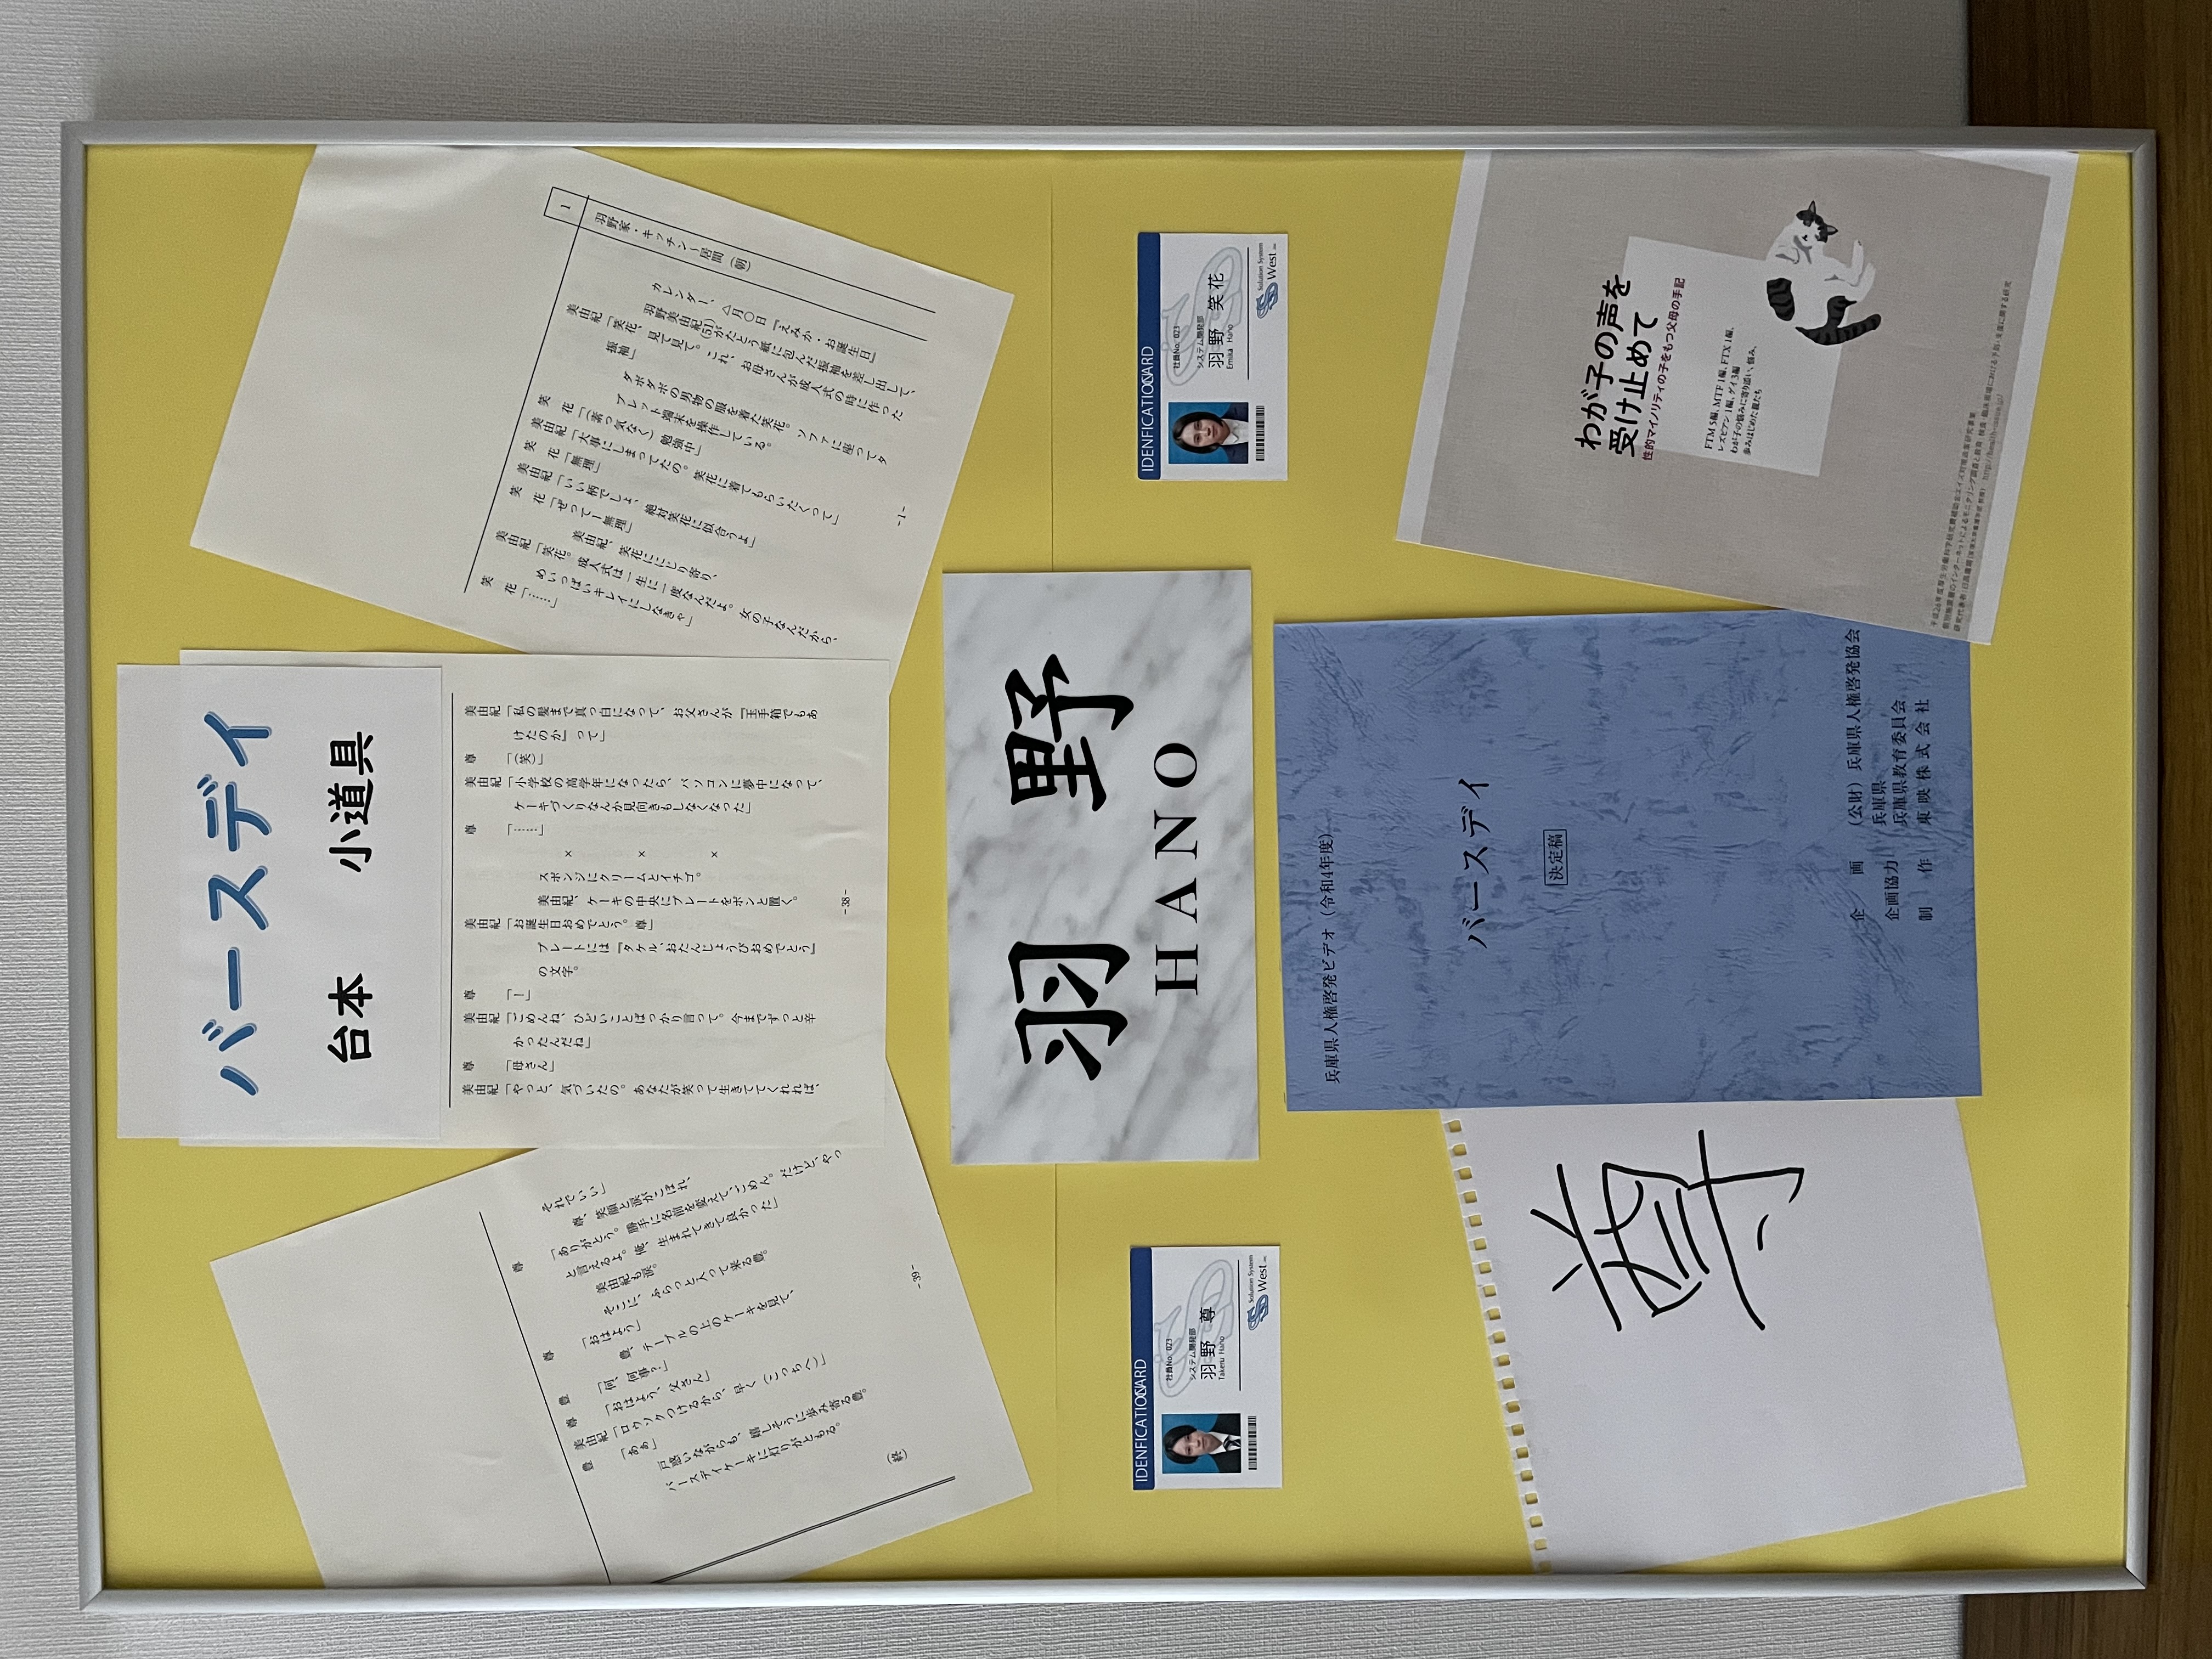 バースデイ
台本　小道具
1
羽野家・キッチン～居間（朝）
カレンダー、
△月〇日『えみか・お誕生日』
羽野美由紀(51)がたとう紙に包んだ振袖を差し出して、
美由紀「笑花、見て見て。これ、お母さんが成人式の時に作った
振袖」
ダボダボの男物の服を着た笑花。ソファに座ってタ
ブレット端末を操作している。
笑　花「（素っ気なく）勉強中」
美由紀「大事にしまってたの。笑花に着てもらいたくって」
笑　花「無理」
美由紀「いい柄でしょ、絶対笑花に似合うよ」
笑　花「ぜってー無理」
美由紀、笑花ににじり寄り、
美由紀「笑花。成人式は一生に一度なんだよ。女の子なんだから、
めいっぱいキレイにしなきゃ」
笑　花「……」
-1-
美由紀「私の髪まで真っ白になって、お父さんが『玉手箱でもあ
けたのか』って」
尊　　「（笑）」
美由紀「小学校の高学年になったら、パソコンに夢中になって、
ケーキづくりなんか見向きもしなくなった」
尊　　「……」
×　×　×
スポンジにクリームとイチゴ。
美由紀、ケーキの中央にプレートをポンと置く。
美由紀「お誕生日おめでとう。尊」
プレートには『タケル、おたんじょうびおめでとう』
の文字。
尊　　「！」
美由紀「ごめんね、ひどいことばっかり言って。今までずっと辛
かったんだね」
尊　　「母さん」
美由紀「やっと、気づいたの。あなたが笑って生きててくれれば、
-38-
それでいい」
尊、笑顔と涙がこぼれ、
尊　　「ありがとう。勝手に名前を変えて、ごめん。だけど、やっ
と言えるよ。俺、生まれてきて良かった」
美由紀も涙。
そこに、ふらっと入って来る豊。
尊　　「おはよう」
豊、テーブルの上のケーキを見て、
豊　　「何、何事？」
尊　　「おはよう、父さん」
美由紀「ロウソクつけるから、早く（こっちへ）」
豊　　「あぁ」
戸惑いながらも、嬉しそうに歩み寄る豊。
バースデイケーキに灯りがともる。
（終）
-39-
羽　野
HANO
IDENFICATIOCARD
社員No: 023
システム開発部
羽野　尊
Takeru Hano
Solusion System
West.inc
IDENFICATIOCARD
社員No: 023
システム開発部
羽野　笑花
Emika Hano
Solusion System
West.inc
尊
兵庫県人権啓発ビデオ（令和4年度）
バースデイ
決定稿
企　　画　（公財）兵庫県人権啓発協会
兵庫県
企画協力　兵庫県教育委員会
制　　作　東映株式会社
わが子の声を
受け止めて
性的マイノリティの子をもつ父母の手記
FTM 5編、MTF 1編、FTX 1編、
レズビアン 1編、ゲイ 3編
わが子の悩みに寄り添い、悩み、
歩みはじめた親たち